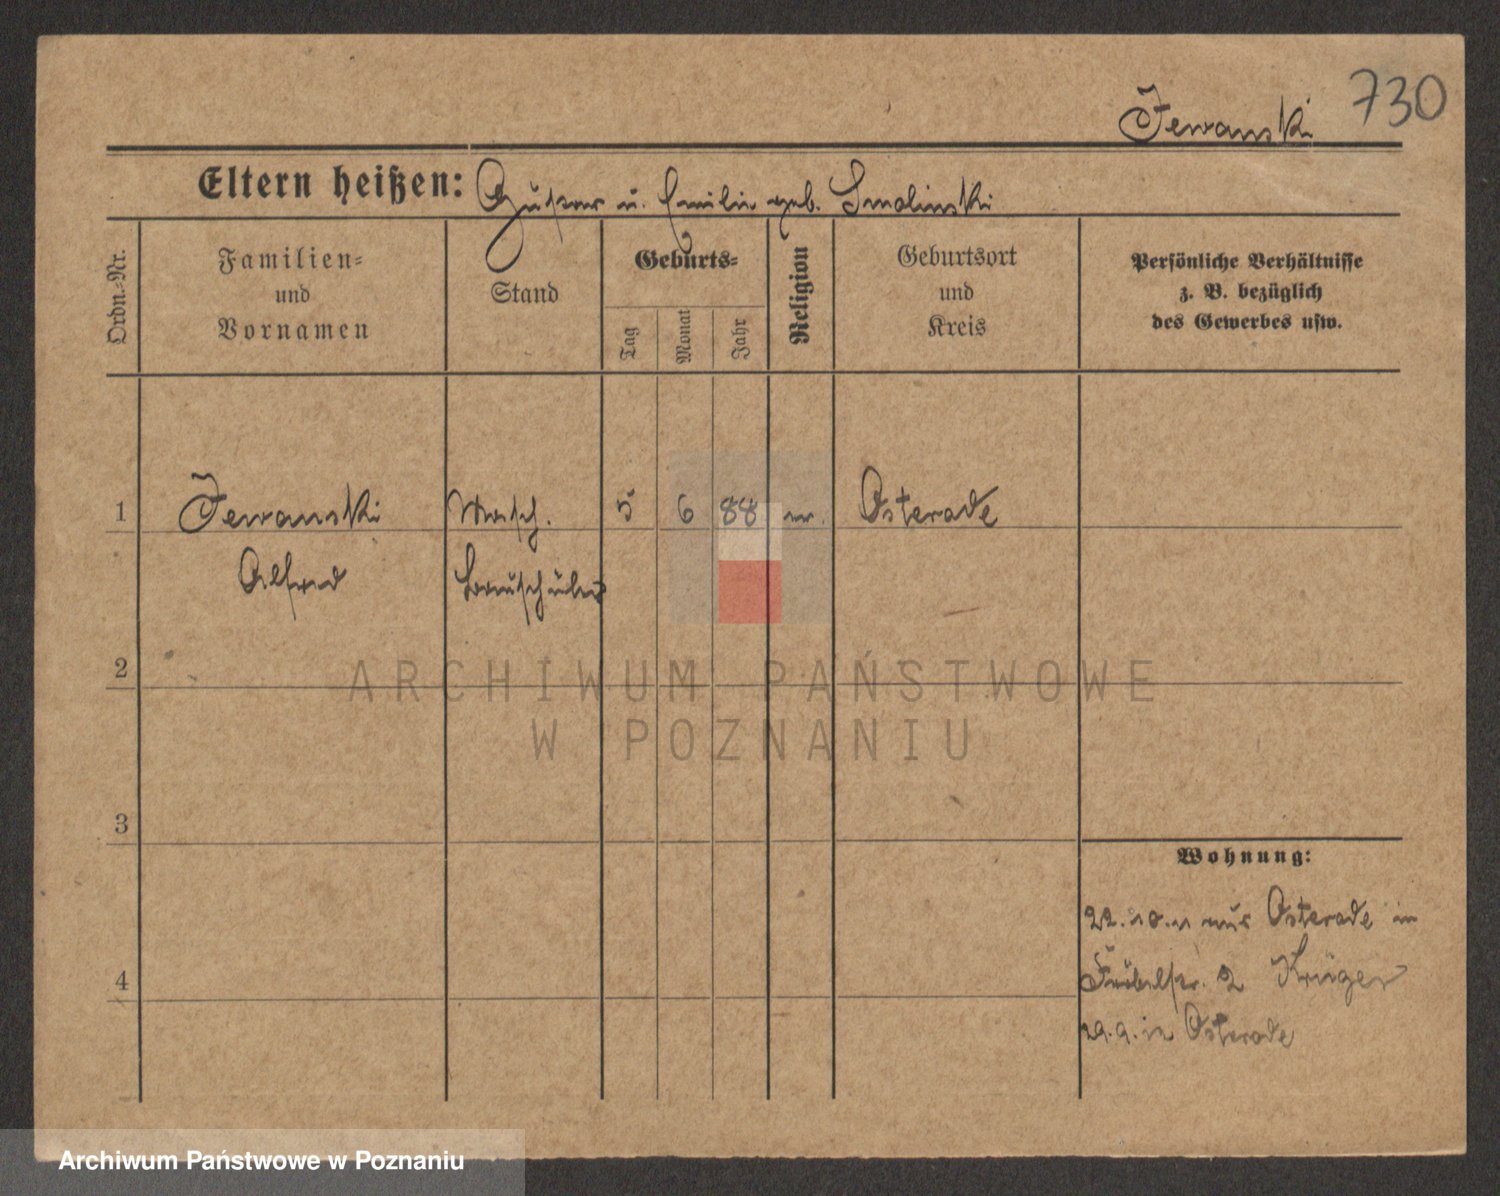 730
Jewanski
Eltern heißen: Gustav u. Emilie geb. Smolinski
Ordn.=Nr.
Familien=
und
Vornamen
Stand
Geburts=
Tag
Monat
Jahr
Religion
Geburtsort
und
Kreis
Persönliche Verhältnisse
z. B. bezüglich
des Gewerbes usw.
1 Jewanski Masch. 5 6 88 ev. Osterode
Alfred bauschüler
2
3
4
Wohnung:
22.10.11 aus Osterode in
Fröbelstr. 2 Krüger
29.9.12 Osterode
ARCHIWUM PAŃSTWOWE
W POZNANIU
Archiwum Państwowe w Poznaniu